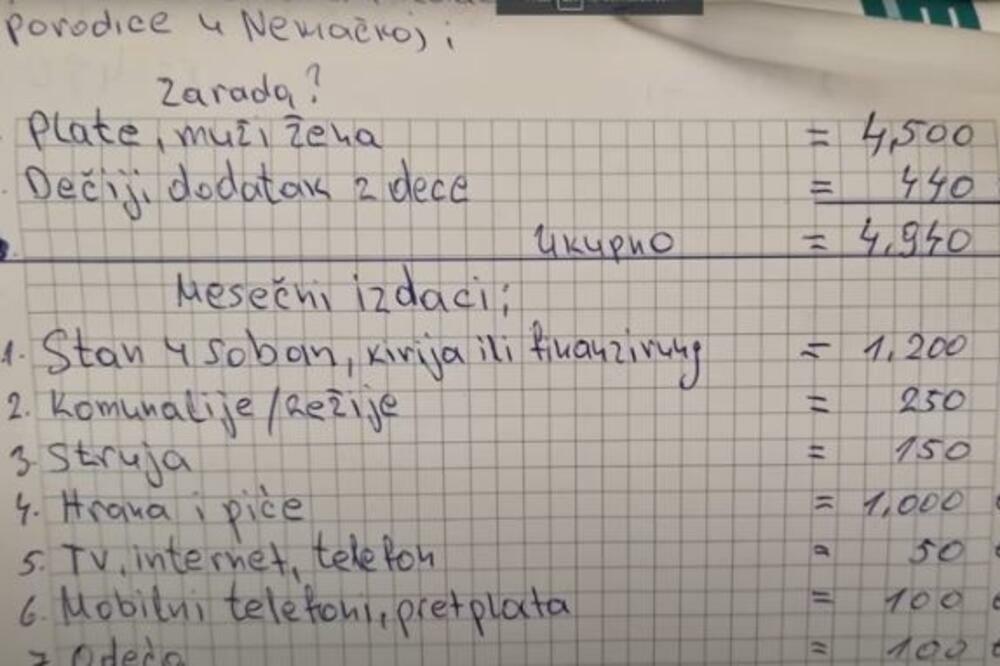 porodice u Nemačkoj;
Zarada?
Plate, muž i žena = 4,500
Dečiji dodatak 2 dece = 440
Ukupno = 4.940
Mesečni izdaci;
1. Stan 4 soban, kirija ili finanzirung = 1.200
2. Komunalije/Režije = 250
3. Struja = 150
4. Hrana i piće = 1,000
5. TV, internet, telefon = 50
6. Mobilni telefoni, pretplata = 100
7. Odeća = 100